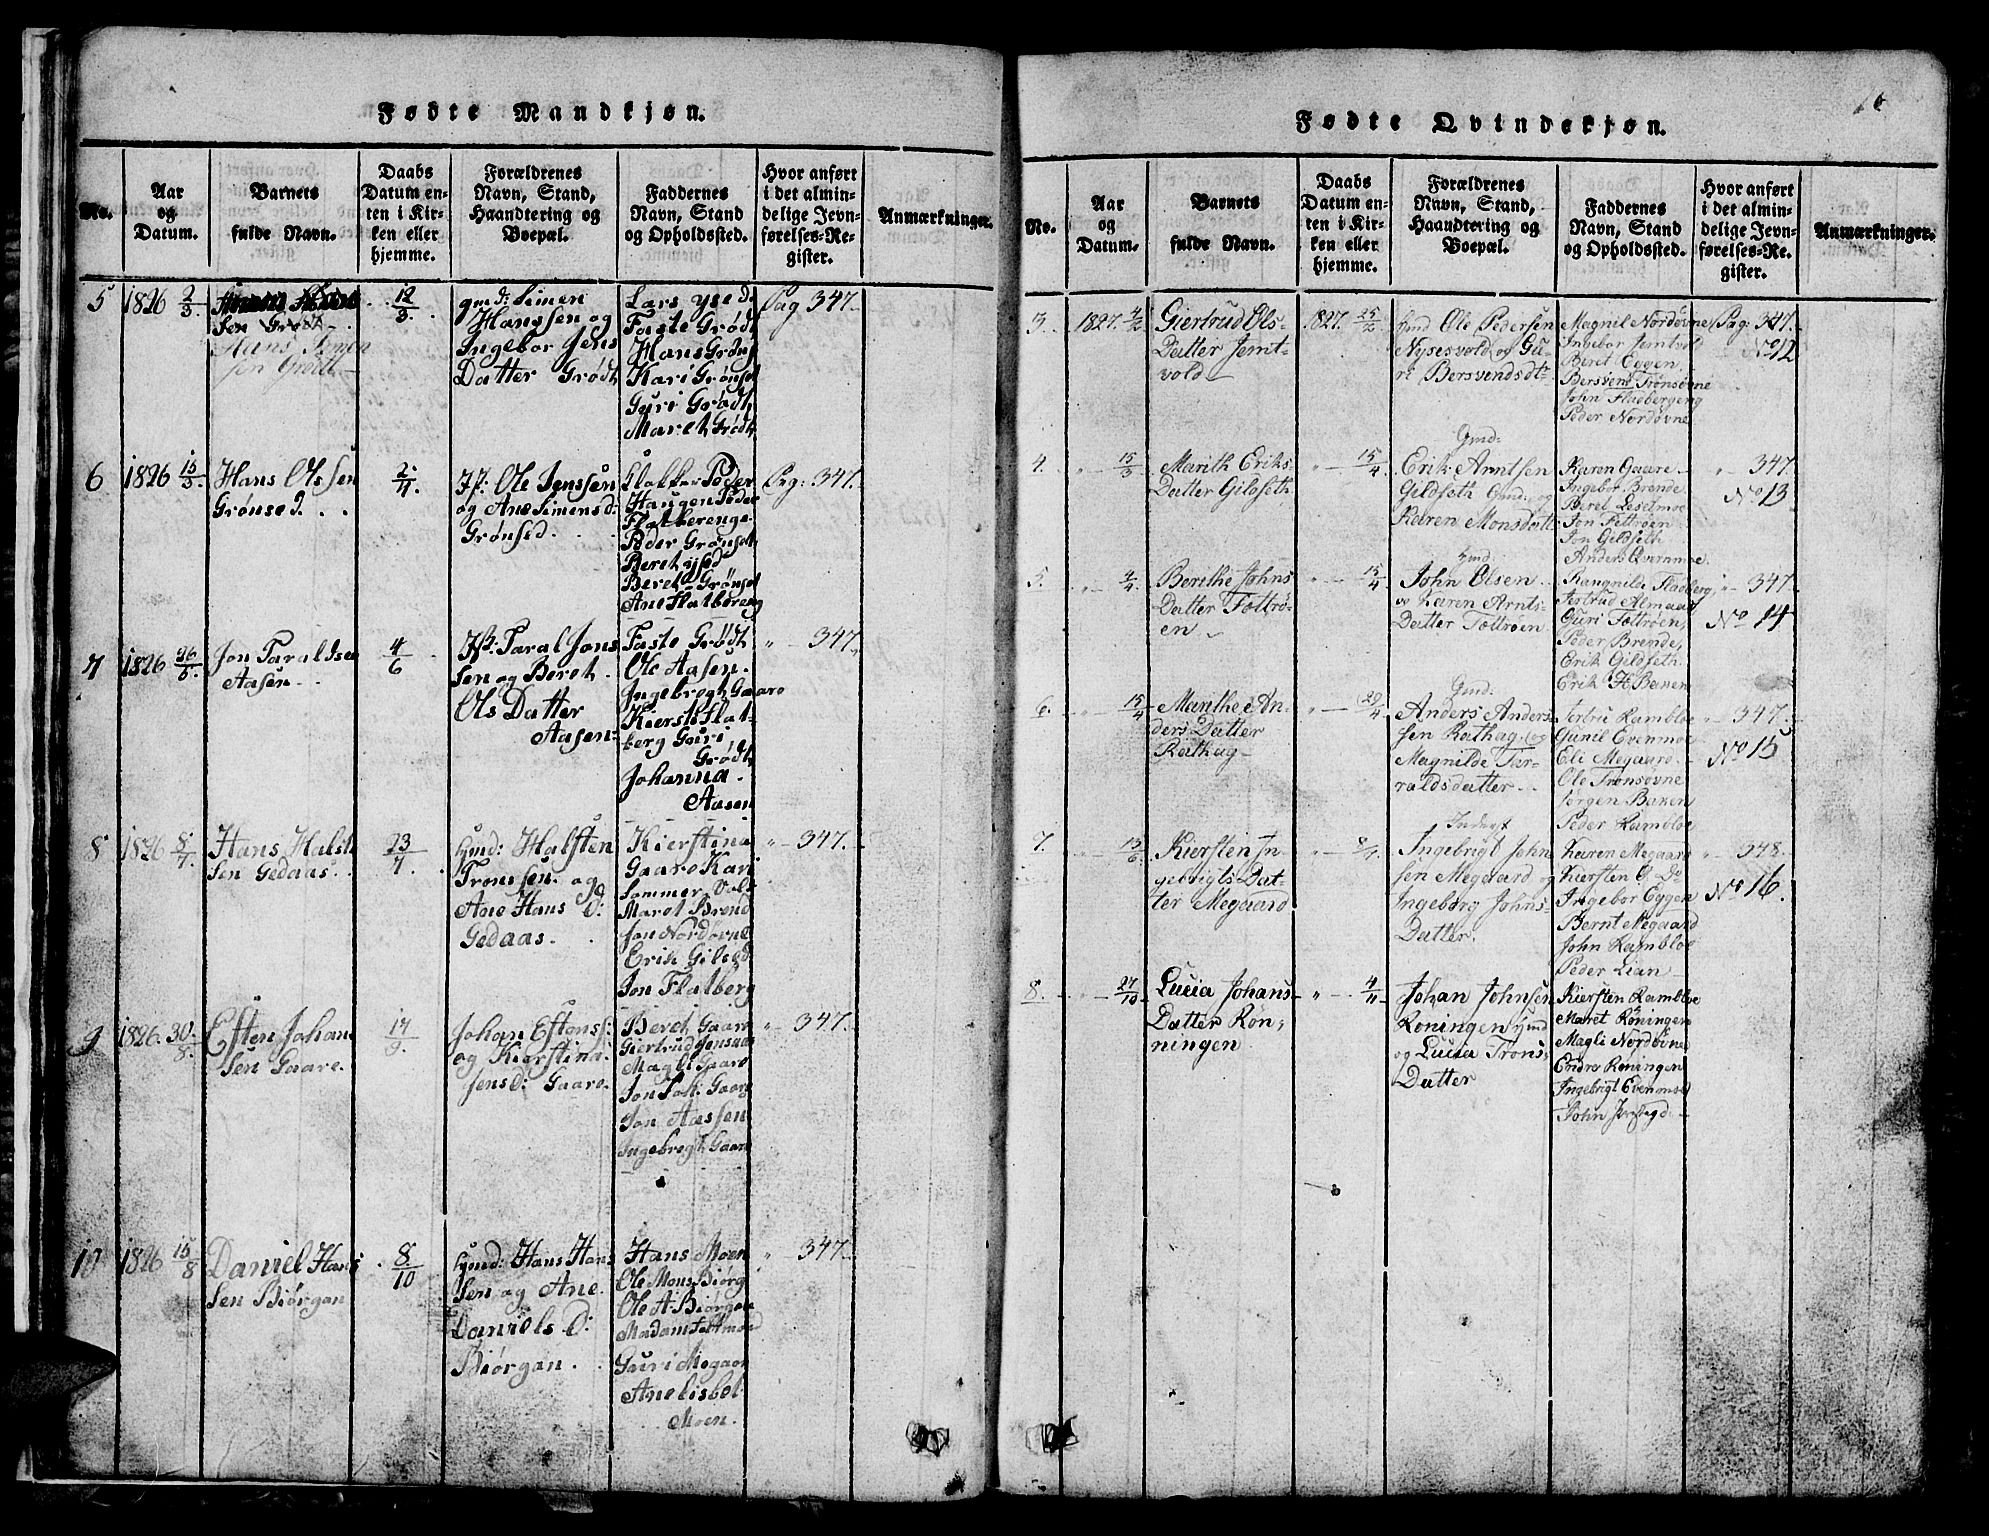 Fødte Mandkjøn.
No.
Aar
og
Datum.
Barnets
fulde Navn.
Daabs
Datum en-
ten i Kir-
ken eller
hjemme.
Forældrenes
Navn, Stand,
Haandtering og
Boepæl.
Faddernes
Navn, Stand
og Opholdssted.
Hvor anført
i det almin-
delige Jevn-
førelses-Re-
gister.
Anmærkninger.
5
1826 2/3
Sen Grødt
Hans Simen
sen Grødt
12/3
gmd: Simen
Hanssen og
Ingebor Jens
Datter Grødt
Lars ysed
Faste Grødt
Hans Grønset
Kari Grønset
Guri Grødt
Maret Grødt
Pag 347.
6
1826 15/3
Hans Olssen
Grønsed.
2/4
Ole Jenssen
og Ane Simensd:
Grønsed.
Klokker Peder
Haugen Peder
Flatberenge
Peder Grønset
Beret ysed
Beret Grønset
Ane Flatbereng
Pag: 347.
7
1826 26/5
Jon Taraldsen
Aasen
4/6
Taral Jons
sen og Beret
Ols Datter
Aasen
Faste Grødt
Ole Aasen.
Ingebrogt Gaare
Kiersti Flat-
berg Guri
Grødt
Johanna
Aasen
" 347.
8
1826 5/7
Hans Halst
sen Gedaas.
23/7
Hmd: Halsten
Tronssen og
Ane Hans D:
Gedaas.
Kierstina
Gaare Kari
Sommer Vold
Maret Brend
Jon Nordovne
Erik Gilsed
Jon Flatberg
" 347.
9
1826. 30/8
Esten Johan
sen Gaare.
17/9
Johan Estens:
og Kierstina
Jensd: Gaare.
Beret Gaare
Giertrud
Magli Gaare
Jon Gaare
Jon Aassen
Ingebrogt Gaare
" 347.
10
1826 15/8
Daniel Hans
sen Biørgan
8/10
Hmd: Hans Hans
sen og Ane
Daniels D:
Biørgan.
Hans Moen
Ole Mons Biørg
Ole A Biørgan
Madam
Guri Megaar
Ane Lisbet
Moen.
" 347.
Fødte Qvindekjøn.
No.
Aar
og
Datum.
Barnets
fulde Navn.
Daabs
Datum en-
ten i Kir-
ken eller
hjemme.
Forældrenes
Navn, Stand,
Haandtering og
Boepæl.
Faddernes
Navn, Stand
og Opholdssted.
Hvor anført
i det almin-
delige Jevn-
førelses-Re-
gister.
Anmærkninger.
3.
1827. 4/2
Giertrud Ols-
Datter Jemt-
vold
1827. 25/2
Hmd Ole Pedersen
Nysesvold og Gu-
ri Bersvendsdt.
Magnil Nordøvne
Ingebor Jemtvol
Beret Eggen
Bersvend Trønsøvne
John Fladbergeng
Peder Nordøvne
Pag: 347.
No 12
4.
" 15/3
Marith Eriks-
Datter Gildseth
" 15/4
Gmd:
Erik Arntsen
Gildseth Gmd: og
Karen Monsdatt:
Karen Gaare
Ingebor Brende
Beret Leseimoe
Jon Fettrøen
Jon Gildseth
Anders Øvernmoe.
" 347.
No 13
5.
" 4/4
Berithe Johns
Datter Fettrø-
en
" 15/4
Hmd:
John Olsen
o Karen Arnts-
Datter Fettrøen
Rangnild Fladberg,
Jertrud Almaas
Guri Fettrøen,
Peder Brende,
Erik Gildseth
Erik H. Banen
" 347.
No 14
6.
" 15/4
Marithe An-
ders Datter
Rathag
" 29/4
Gmd:
Anders Anders
sen Rathag og
Magnilde Tar-
raldsdatter.
Jertru Rambloe
Gunil Evenmoe
Eli Megaard
Ole Trønsøvne
Jørgen Banen
Peder Rambloe
" 347.
No 15
7.
" 13/6
Kiersten In-
gebrigts Dat-
ter Megaard
" 8/7
Inderst
Ingebrigt John
sen Megaard og
Ingeborg Johns-
Datter.
Karen Megaard
Kiersten O. Do
Ingebor Eggen
Bernt Megaard
John Rambloe
Peder Lian
" 348.
No 16.
8.
" 27/10
Lucia Johans-
Datter Røn-
ningen
" 4/11
Johan Johnsen
Roningen Hmd
og Lucia Trons-
Datter
Kiersten Rambloe
Maret Röningen
Magli Nordovne
Endre Roningen
Ingebrigt Evenmoe
John